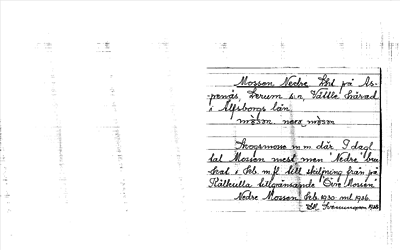 Mossen Nedre Lht på As-
penäs, Lerum sn, Vättle härad
i Älfsborgs län
mòsən. nerə mòsən
Skogsmosse m m där. I dagl
tal Mossen mest men Nedre bru
kat i Kb. m fl till skiljning från på
Kälkulla tillgränsande Övre Mossen
Nedre Mossen Kb. 1930 ml 1936.